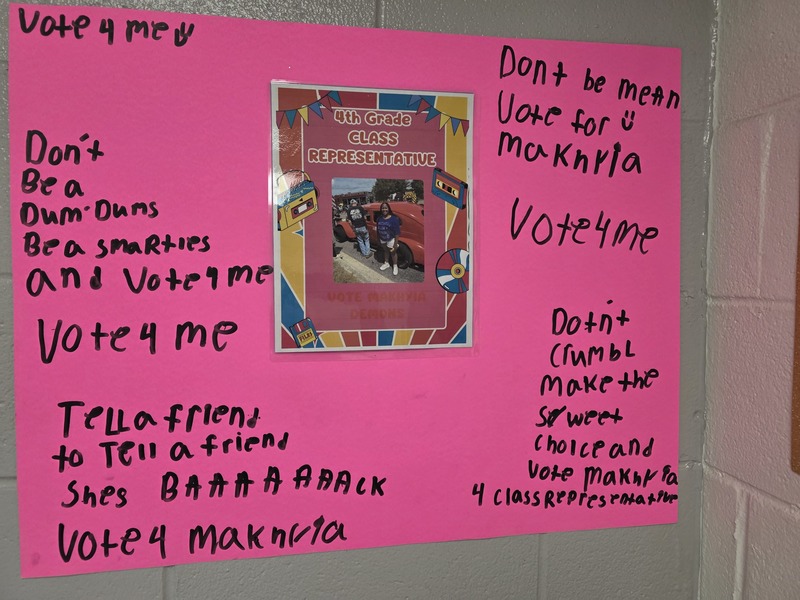 Vote 4 me
Don't
Be a
Dum-Dums
Be a smarties
and Vote 4 me
Vote 4 me
Tell a friend
to Tell a friend
Shes BAAAAAAACK
Vote 4 makhria
4th Grade
CLASS
REPRESENTATIVE
VOTE
DEMONS
FILES
Dont be mean
Vote for
makhria
Vote 4 me
Dotn't
crumbl
make the
sweet
choice and
Vote makhria
4 class Representative